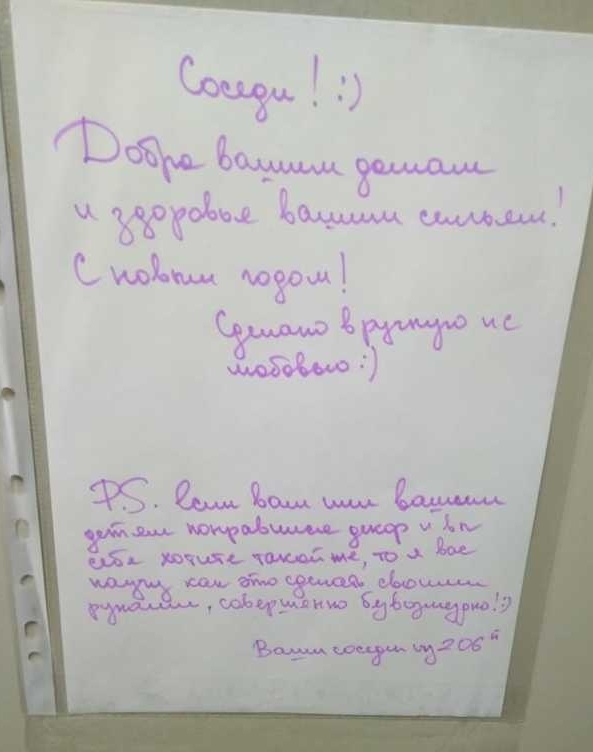 Соседи! :)
Добра вашим домам
и здоровья вашим семьям!
С новым годом!
Сделано вручную и с
любовью :)
P.S. Если вам или вашим
детям понравился декор и вы
себе хотите такой же, то я вас
научу как это сделать своими
руками, совершенно безвозмездно! :)
Ваши соседи из 206й